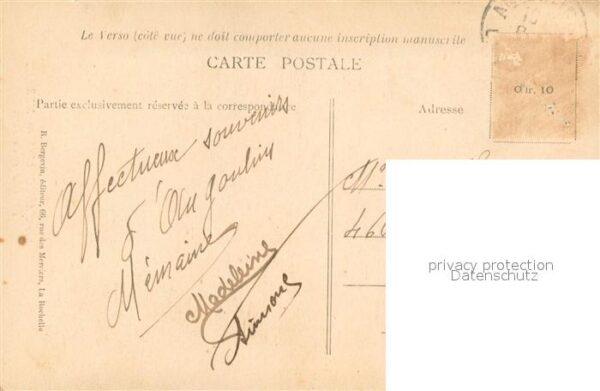 Le Verso (côté vue) ne doit comporter aucune inscription manuscrite
CARTE POSTALE
Partie exclusivement réservée à la correspondance
Adresse
0 fr. 10
Affectueux souvenirs
Mémaine
Madeleine
Simone
M
46
R. Bergevin, éditeur, 66, rue des Merciers, La Rochelle
privacy protection
Datenschutz